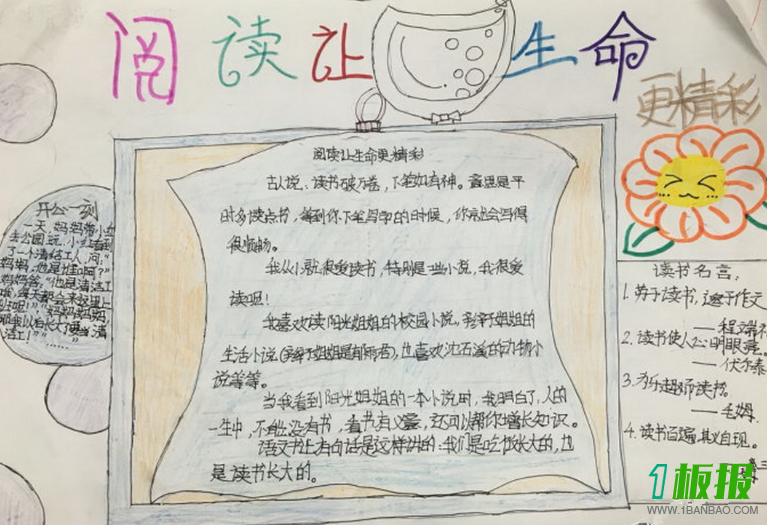 阅读让生命
更精彩
阅读让生命更精彩
古人说、读书破万卷，下笔如有神。意思是平
时多读点书，等到你下笔写的时候，你就会写得
很顺畅。
我从小就很爱读书，特别是一些小说，我很爱
读呢！
我喜欢读阳光姐姐的校园小说。
生活小说，也喜欢沈石溪的动物小
说等等。
当我看到阳光姐姐的一本小说时，我明白了，人的
一生中，不能没有书，看书有义，还可以帮你增长知识。
语文书上有句话是这样讲的：我们是吃饭长大的，也
是读书长大的。
开心一刻
一天，妈妈带小红
去公园玩，小红看到
了一个清洁工人，问：“
妈妈，他是谁啊？”
妈妈答。“他是清洁工
读书名言。
1. 劳于读书，逸于作文
——程端礼
2. 读书使人心明眼亮。
——伏尔泰
3.
——毛姆
4. 读书百遍，其义自现。
1板报
WWW.1BANBAO.COM